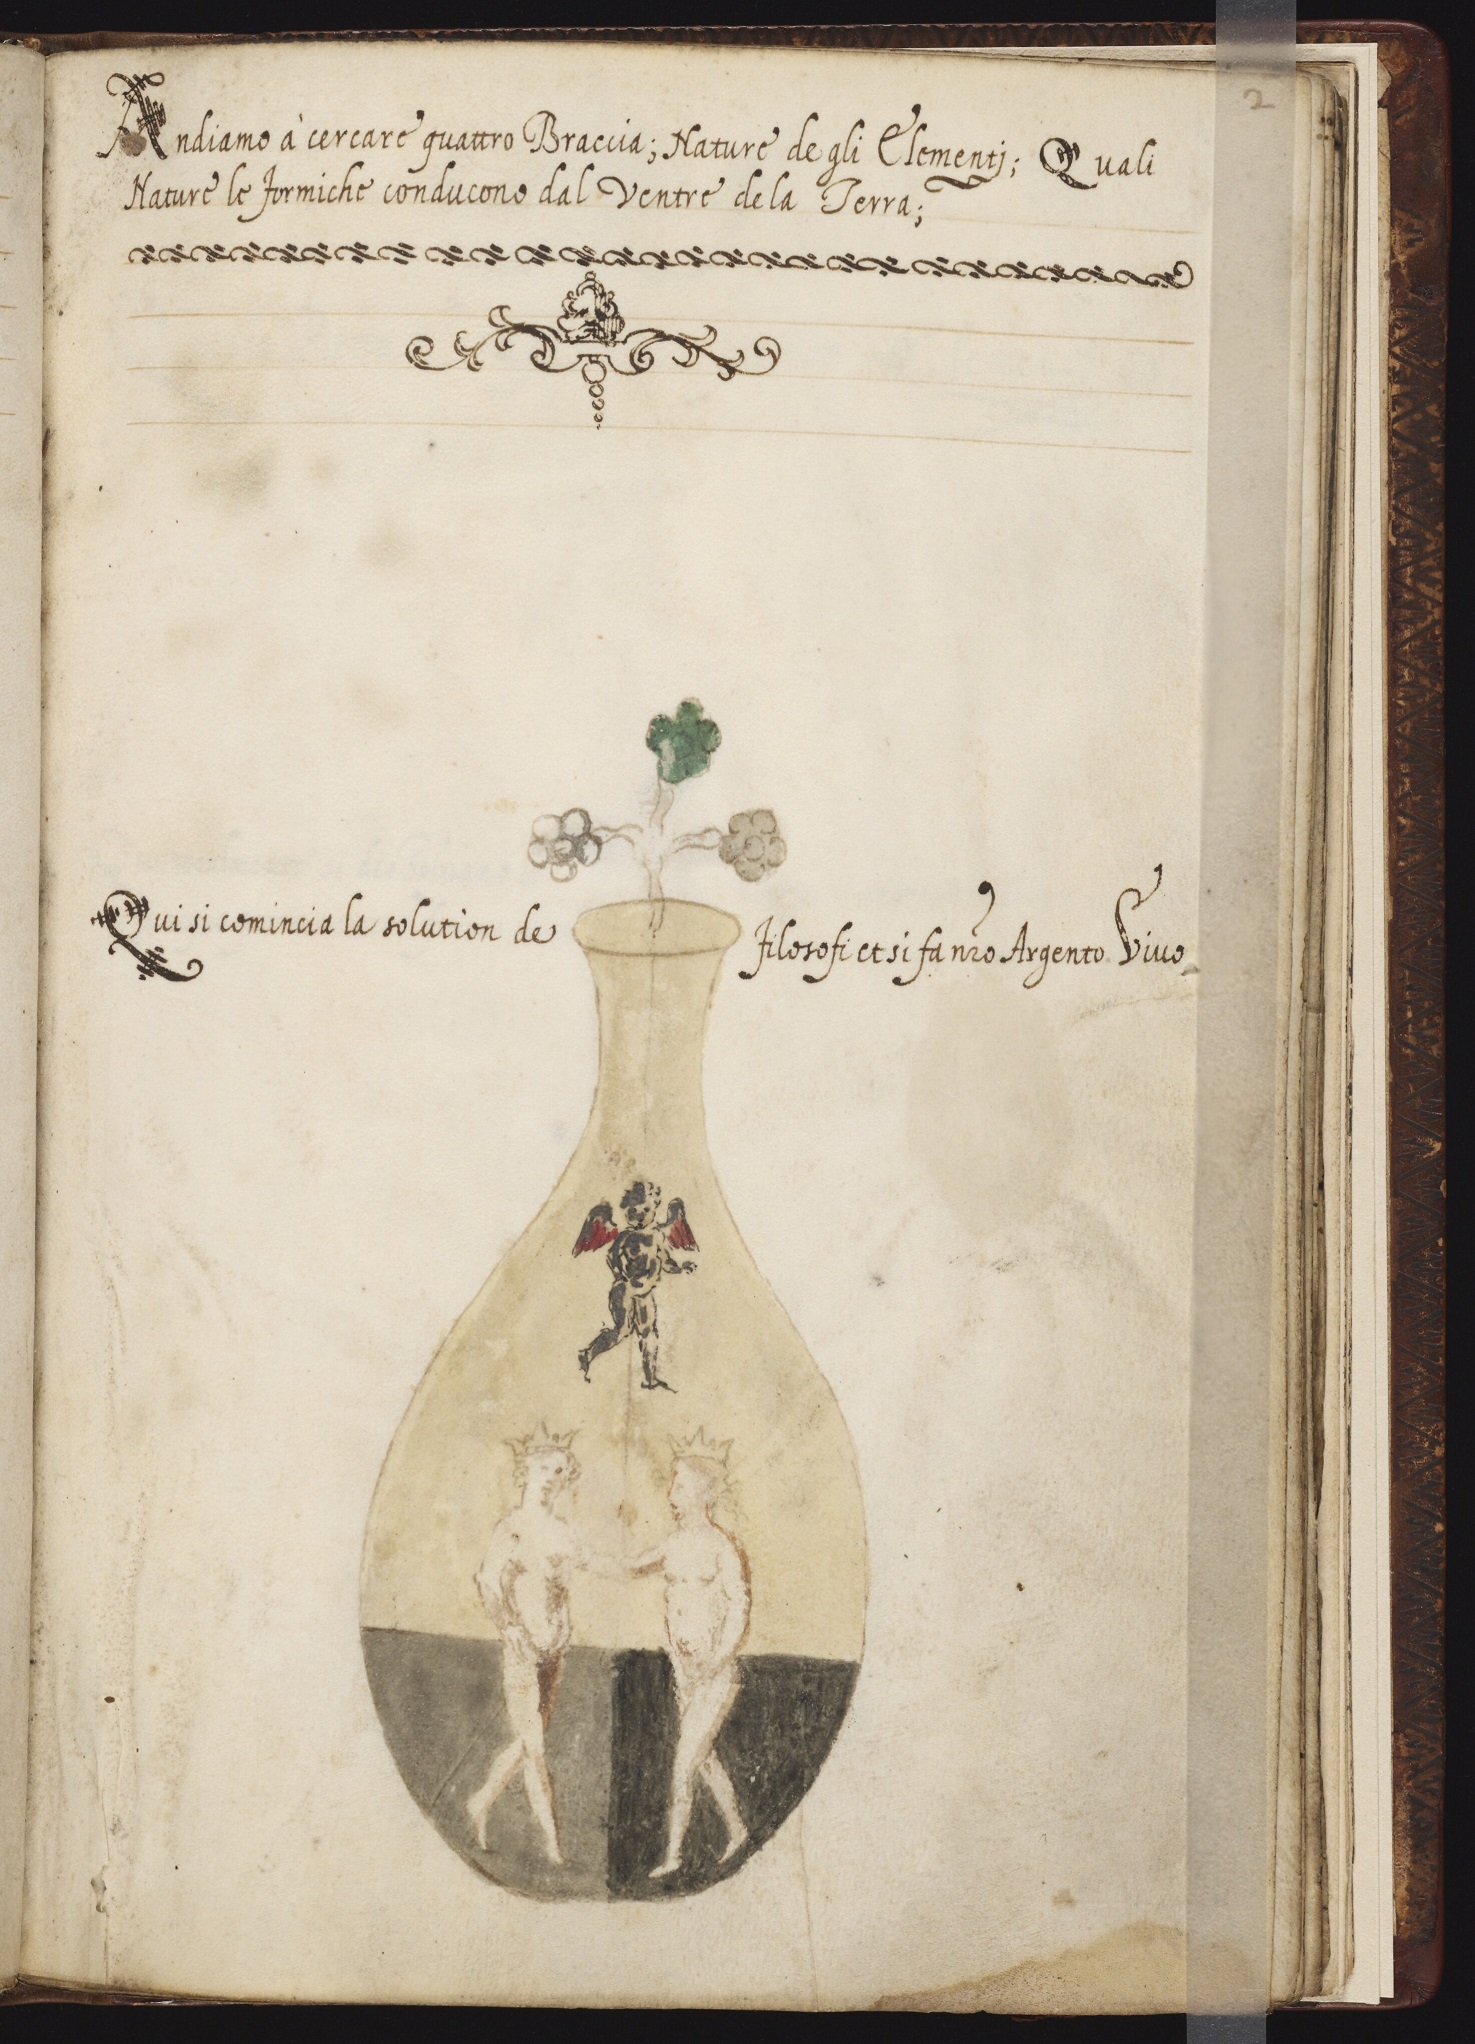 Andiamo à cercare quattro Braccia; Nature de gli Elementj; Quali
Nature le formiche conducono dal Ventre de la Terra;
Qui si comincia la solution de Filosofi et si fa nr̃o Argento Vivo
2